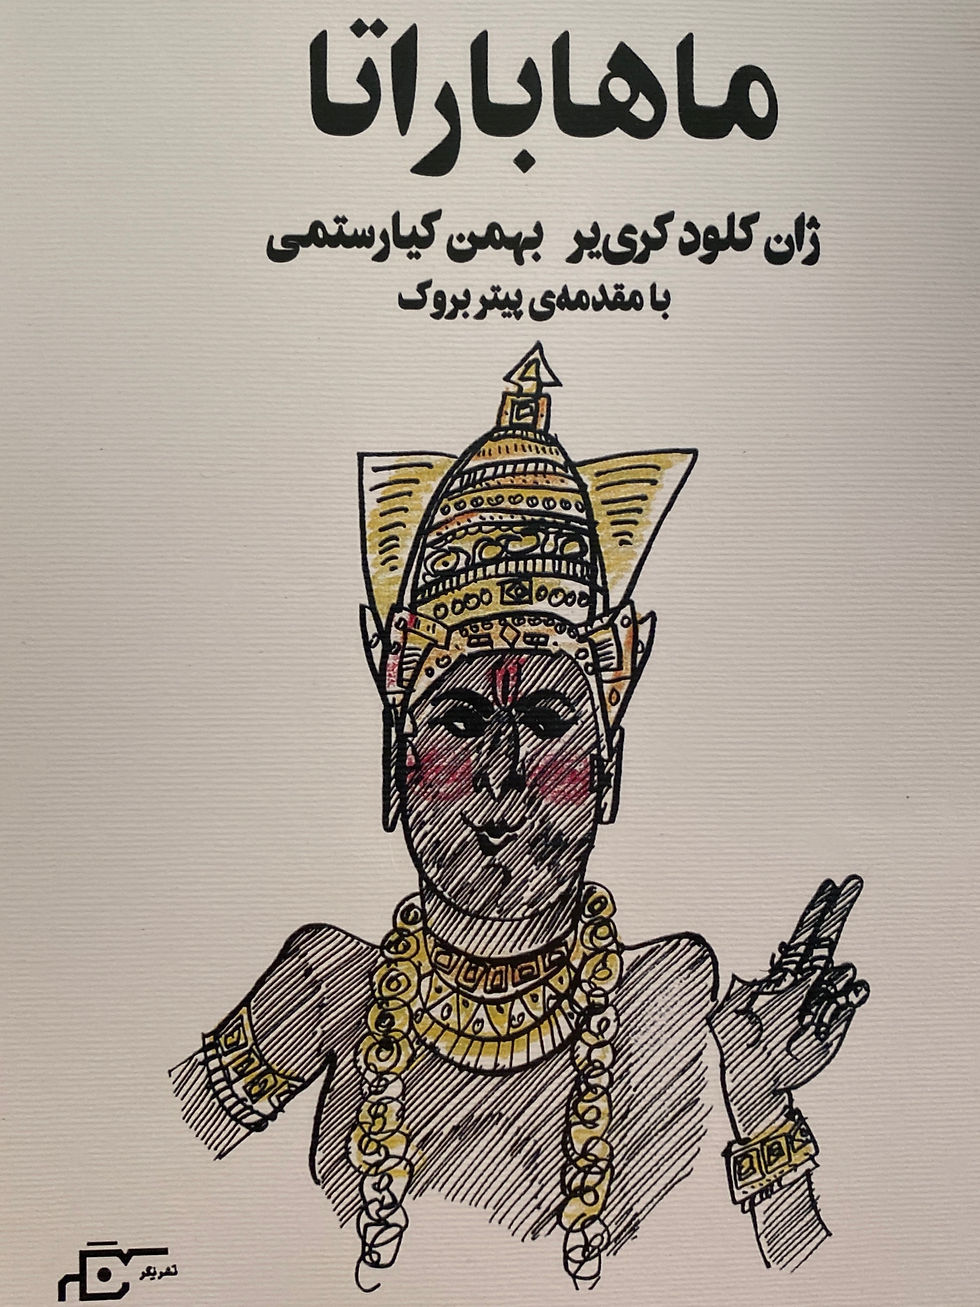 ماهاباراتا
ژان کلود کری‌یر بهمن کیارستمی
با مقدمه‌ی پیتر بروک
نشر نیگر